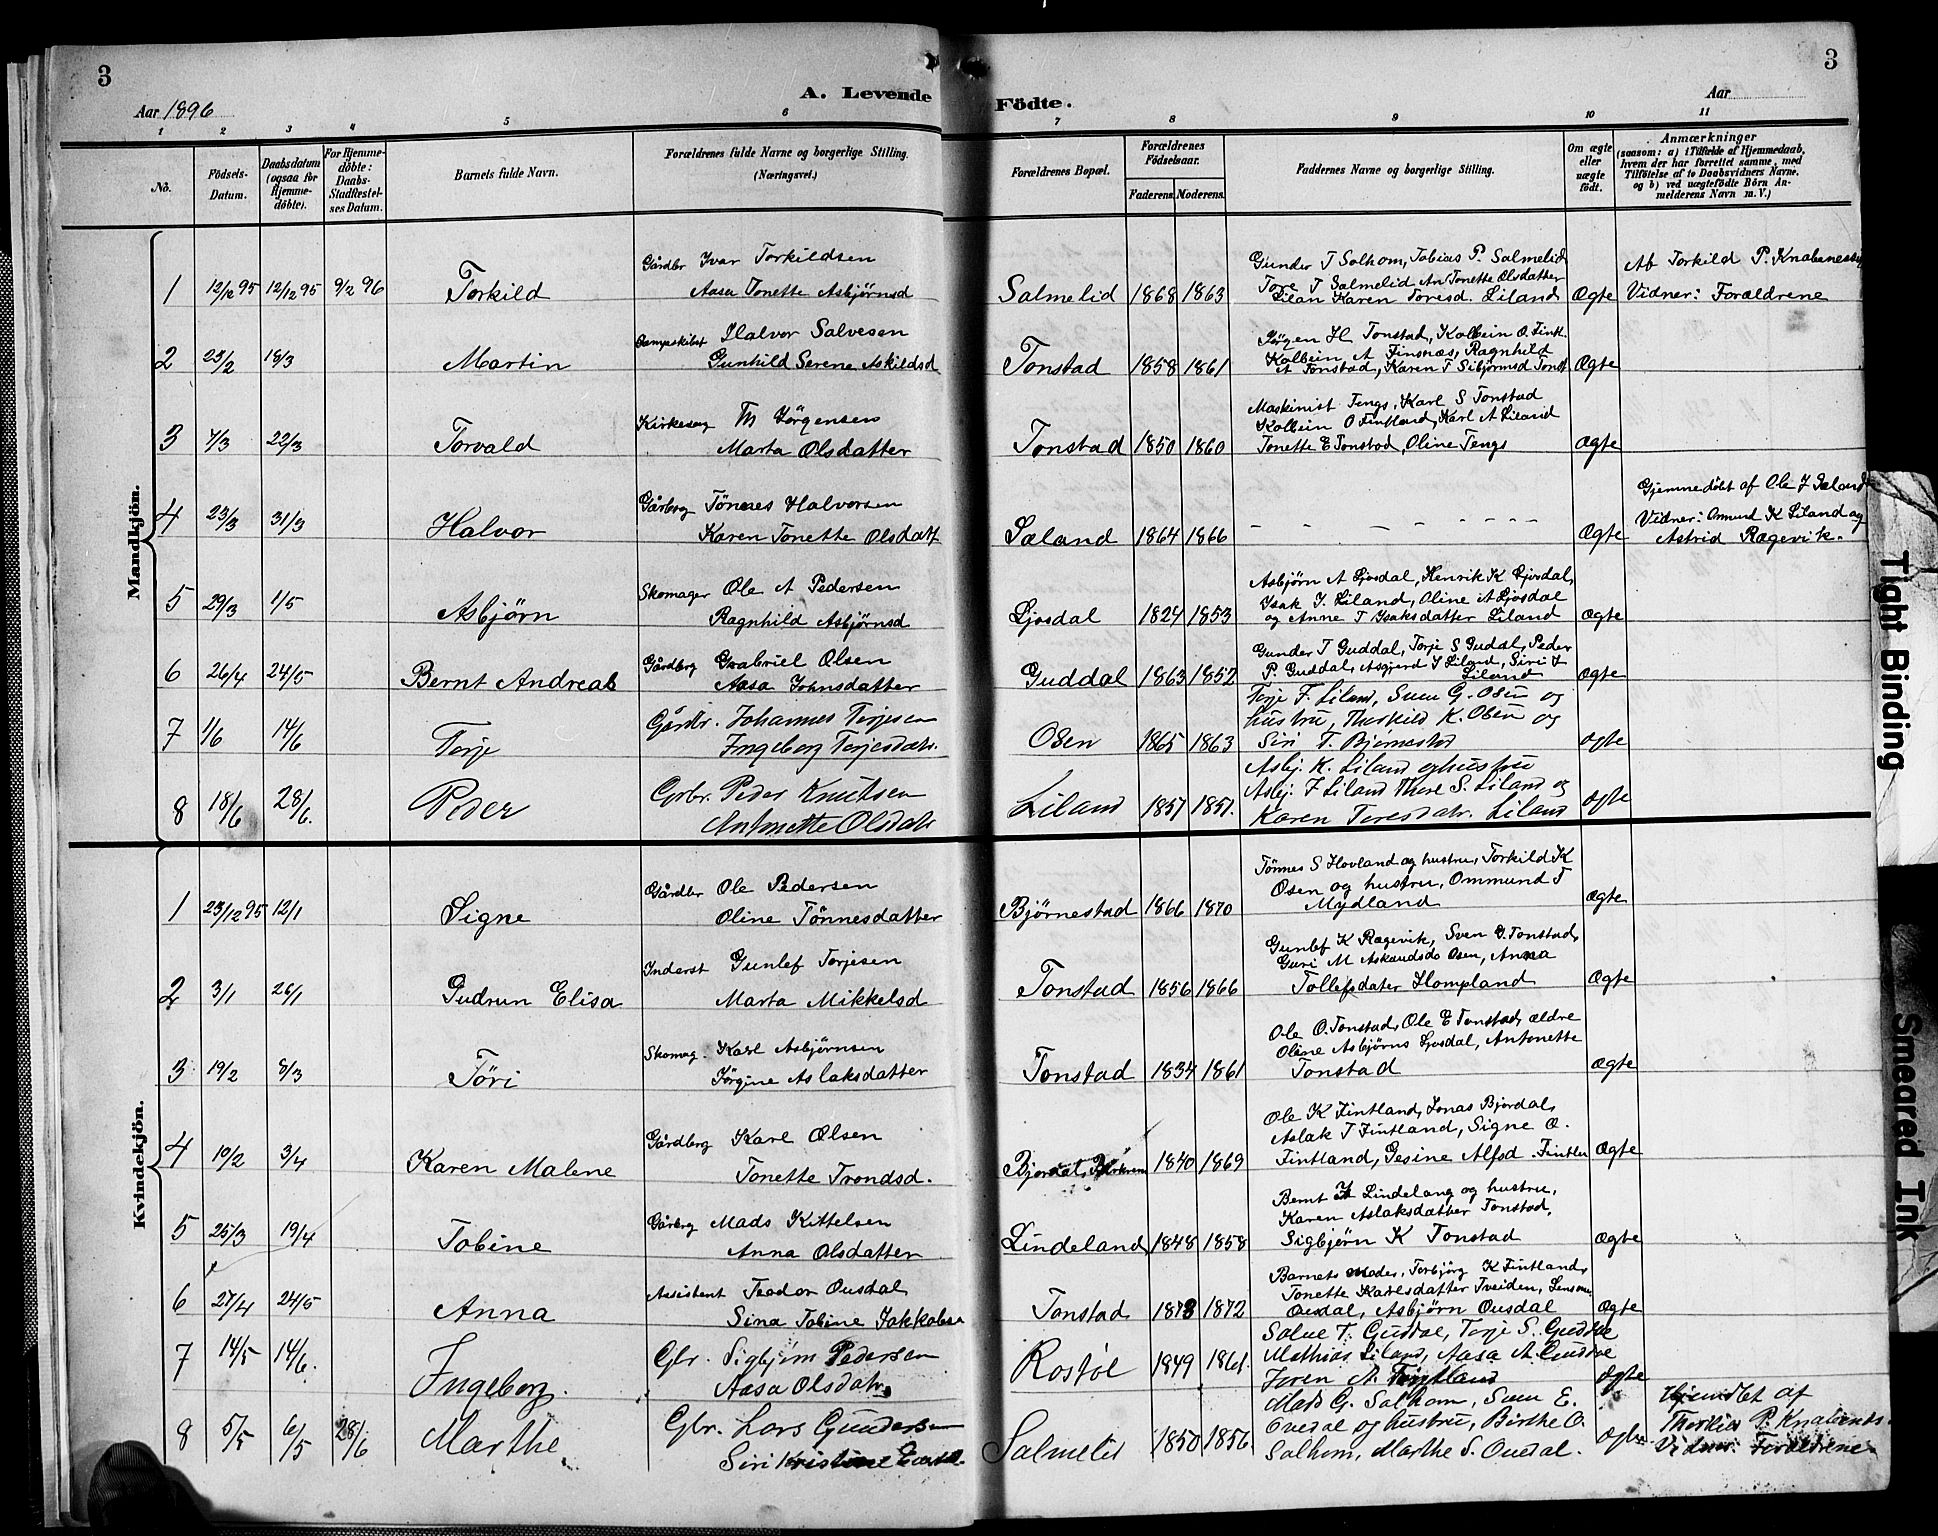 3
3
A. Levende Födte.
Aar 1896
Aar
1 2 3 4 5 6 7 8 9 10 11
No.
Födsels-Datum.
Daabsdatum (ogsaa for Hjemme-döbte).
For Hjemme-döbte: Daabs-Stadfæstel-ses Datum.
Barnets fulde Navn.
Forældrenes fulde Navne og borgerlige Stilling.
(Næringsvei.)
Forældrenes Bopæl.
Forældrenes Födselsaar.
Faderens.
Moderens.
Faddernes Navne og borgerlige Stilling.
Om ægte eller uægte födt.
Anmærkninger
(saasom: a) i Tilfælde af Hjemmedaab,
hvem der har forrettet samme, med
Tilföielse af to Daabsvidners Navne,
og b) ved uægtefödte Börn An-
melderens Navn m. V.)
Mandkjön.
1 12/12 95 12/12 95 9/2 96 Torkild
Gårdbr Ivar Torkildsen
Aasa Tonette Asbjörnsd
Salmelid 1868 1863
Gunder T Solhom, Tobias P. Salmelid
Tore T Salmelid An Tonette Olsdatter
Lilan Karen Toresd. Liland
Ægte
Af Torkild P.
Vidner: Forældrene
2 23/2 18/3 Martin
Halvor Salvesen
Gunhild Serene Askildsd
Tonstad 1858 1861
Jörgen H Tonstad, Kolbein O. Fintl.
Kolbein A Finsnæs, Ragnhild
A Tonstad, Karen T Sibjörnsd Tonst
Ægte
3 7/3 22/3 Torvald
Kirkesang Th Jörgensen
Marta Olsdatter
Tonstad 1850 1860
Maskinist Tengs, Karl S Tonstad
Kolbein O Fintland, Karl A Liland
Tonette E Tonstad, Oline Tengs
Ægte
4 23/3 31/3 Halvor
Gårbrg Tönnes Halvorsen
Karen Tonette Olsdatt
Sæland 1864 1866
- - - - - - - -
Ægte
Gjemmedöbt af Ole J Sæland
Vidner: Omund K Liland og
Astrid Rægevik.
5 29/3 1/5 Asbjörn
Skomager Ole A Pedersen
Ragnhild Asbjörnsd
Ljosdal 1824 1853
Asbjörn A Ljosdal, Henrik K Ljosdal,
Isak J. Liland, Oline A Ljosdal
og Anne T Isaksdatter Liland
Ægte
6 26/4 24/5 Bernt Andreas
Gårdbrg Gabriel Olsen
Aasa Johnsdatter
Guddal 1863 1852
Gunder T Guddal, Torje S Gudal, Peder
P. Guddal, Asgjerd J Liland, Siri J
Liland
Ægte
7 1/6 14/6 Terje
Gårdbr. Johannes Terjesen
Ingeborg Terjesdatr.
Osen 1865 1863
Terje F. Liland, Sven G. Osen og
hustru, Thorkild K. Osen og
Siri T. Bjørnestad
ægte
8 18/6 28/6. Peder
Grbr. Peder Knutsen
Antonette Olsdatr
Liland 1857 1851.
Asbj. K. Liland og hustru
Asbj. J Liland Thore S. Liland og
Karen Toresdatr. Liland
ægte
Kvindekjön.
1 23/12 95 12/1 Signe
Gårdbr Ole Pedersen
Oline Tönnesdatter
Bjørnestad 1866 1870
Tönnes S Hovland og hustru, Torkild K
Osen og hustru, Ommund T
Mydland
Ægte
2 3/1 26/1 Gudrun Elisa
Inderst Gunlef Torjesen
Marta Mikkelsd
Tonstad 1856 1866
Gunlef K Rægevik, Sven G. Tonstad,
Guri M Osen, Anna
Tollefsdater Hompland
Ægte
3 19/2 8/3 Töri
Skomag. Karl Asbjörnsen
Jörgine Aslaksdatter
Tonstad 1834 1861
Ole O. Tonstad, Ole E Tonstad, ældre
Oline Asbjörns Ljosdal, Antonette
Tonstad
Ægte
4 19/2 3/4 Karen Malene
Gårdbrg Karl Olsen
Tonette Trondsd.
Bjordal, 1840 1869
Ole K Fintland, Jonas Bjordal,
Aslak T Fintland, Signe O.
Fintland, Gesine Alfsd. Fintln
Ægte
5 25/3 19/4 Tobine
Gårbrg Mads Kittelsen
Anna Olsdatter
Lindeland 1848 1858
Bernt Lindeland og hustru,
Karen Aslaksdatter Tonstad,
Sigbjörn K Tonstad
Ægte
6 27/4 24/5 Anna
Assistent Teodor Ousdal
Sina Tobine Jakkobse
Tonstad 1873 1872
Barnets Moder, Torbjörg K Fintland,
Tonette Karlsdatter Tveiden,
Ousdal, Asbjörn Ousdal
Ægte
7 14/5 14/6. Ingeborg.
Gbr. Sigbjørn Pedersen
Aasa Olsdatr.
Rostøl 1849 1861.
Salve T. Guddal, Torje S. Guddal
Mathias Liland, Aasa A. Guddal
Joren A. Fintland
ægte
8 5/5 6/5 28/6 Marthe
Gbr. Lars Gundersen
Siri Kristine
Salmelid 1850 1856
Mads G. Salhom, Sven E.
Ousdal og hustru, Birthe O.
Salhom, Marthe S. Ousdal.
ægte
Hjemdbt af
Thorkild P.
Vidner: Forældrene
Tight Binding
Smeared Ink